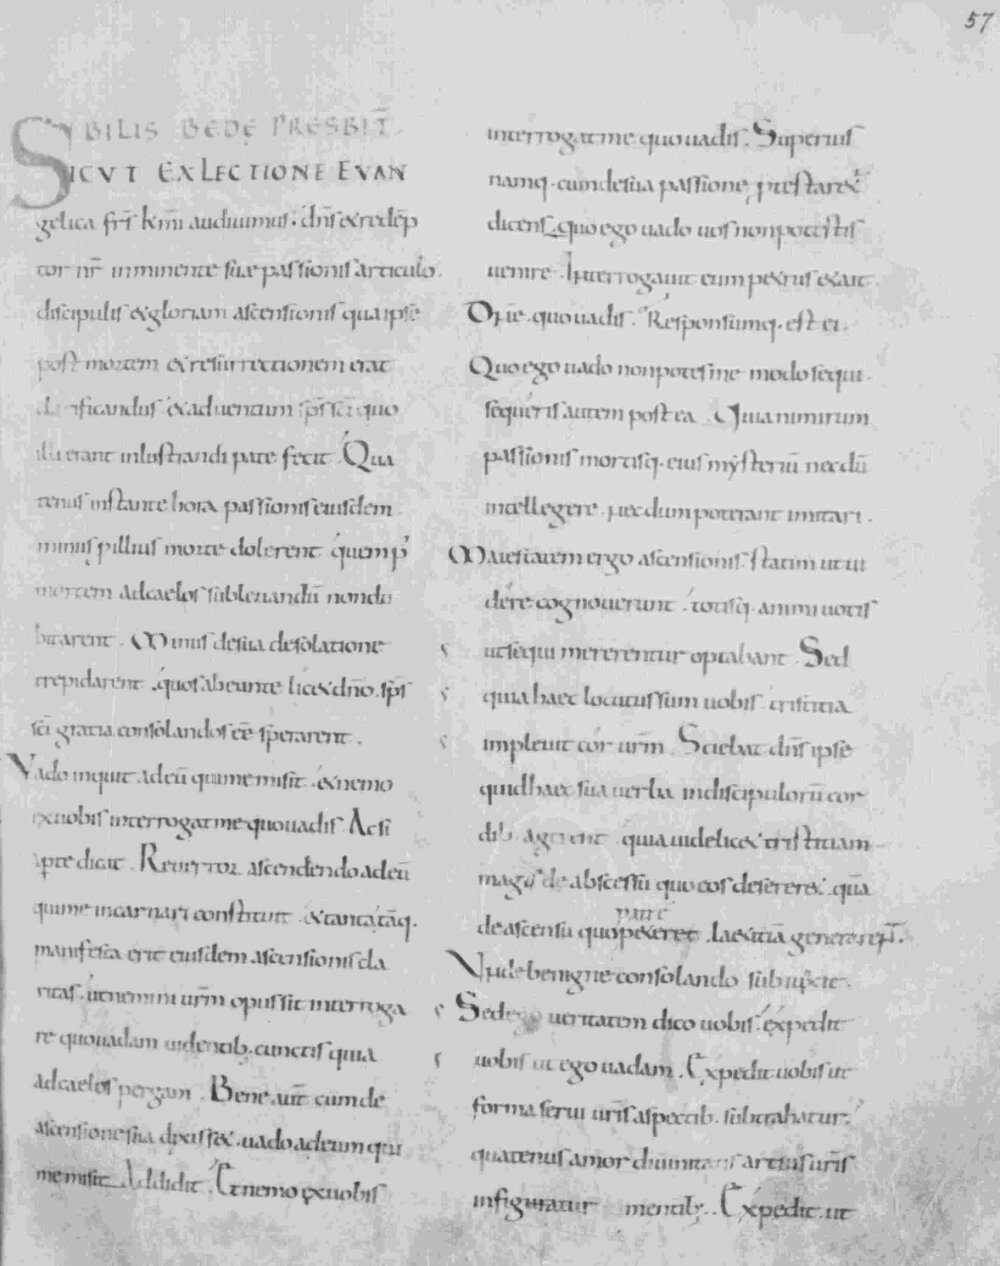 57
BILIS BEDĘ PRESBIT̄
SICVT EX LECTIONE EVAN
gelica fr̄s km̄ audiuimus. dn̄s & redēp
tor nr̄ imminente suae passionis articulo.
discipulis & gloriam ascensionis qua ipse
post mortem & resurrectionem erat
clarificandus & aduentum sp̄s sc̄i quo
illi erant inlustrandi pate fecit. Qua
tenus instante hora passionis eiusdem
minus pillius morte dolerent quem p'
mortem ad caelos subleuandū non du
bitarent. Minus de sua desolatione
trepidarent. quos abeunte lic& dn̄o. sp̄s
sc̄i gratia consolandos eē sperarent.
Vado inquit ad eū qui me misit. & nemo
ex uobis interrogat me quo uadis. Ac si
apte dicat. Reuertor ascendendo ad eū
qui me incarnari constituit. & tanta tāq.
manifesta erit eiusdem ascensionis cla
ritas. ut nemini urm̄ opus sit interroga
re quo uadam uidentib. cunctis quia
ad caelos pergam. Bene aut̄ cum de
ascensione sua dixiss&. uado ad eum qui
me misit. Addidit. Et nemo ex uobis
interrogat me quo uadis. Superius
namq. cum de sua passione p̨star&
dicens. quo ego uado uos non potestis
uenire. Interrogauit eum p&rus & ait.
Dn̄e. quo uadis. Responsumq. est ei.
Quo ego uado non potes me modo sequi.
sequeris autem postea. Quia nimirum
passionis mortisq. eius mysteriū necdū
intellegere. necdum poterant imitari.
Maiestatem ergo ascensionis. statim ut ui
dere cognouerunt. totisq. animi uotis
ut sequi mererentur optabant. Sed
quia haec locutus sum uobis tristitia
impleuit cor urm̄. Sciebat dn̄s ipse
quid haec sua uerba in discipulorū cor
dib. agerent. quia uidelic& tristitiam
magis de abscessu quo eos deserer&. quā
patrē
de ascensu quo p&eret. laetitiā generaret.
Vnde benigne consolando subiecit.
Sed ego ueritatem dico uobis. expedit
uobis ut ego uadam. Expedit uobis ut
forma serui uris̄ aspectib. subtrahatur.
quatenus amor diuinitatis artius uris̄
infiguratur mentib.. Expedit. ut